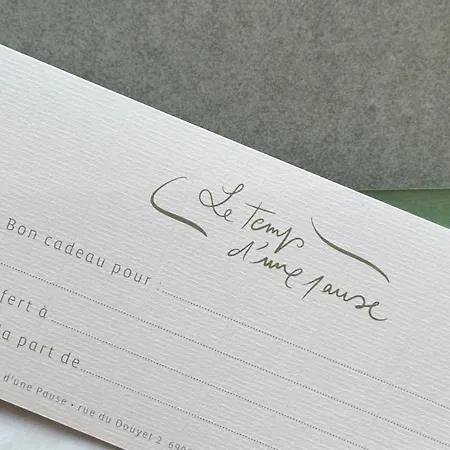 Le temps
d'une pause
Bon cadeau pour :
fert à
la part de
d'une Pause • rue du Douyet 2 690